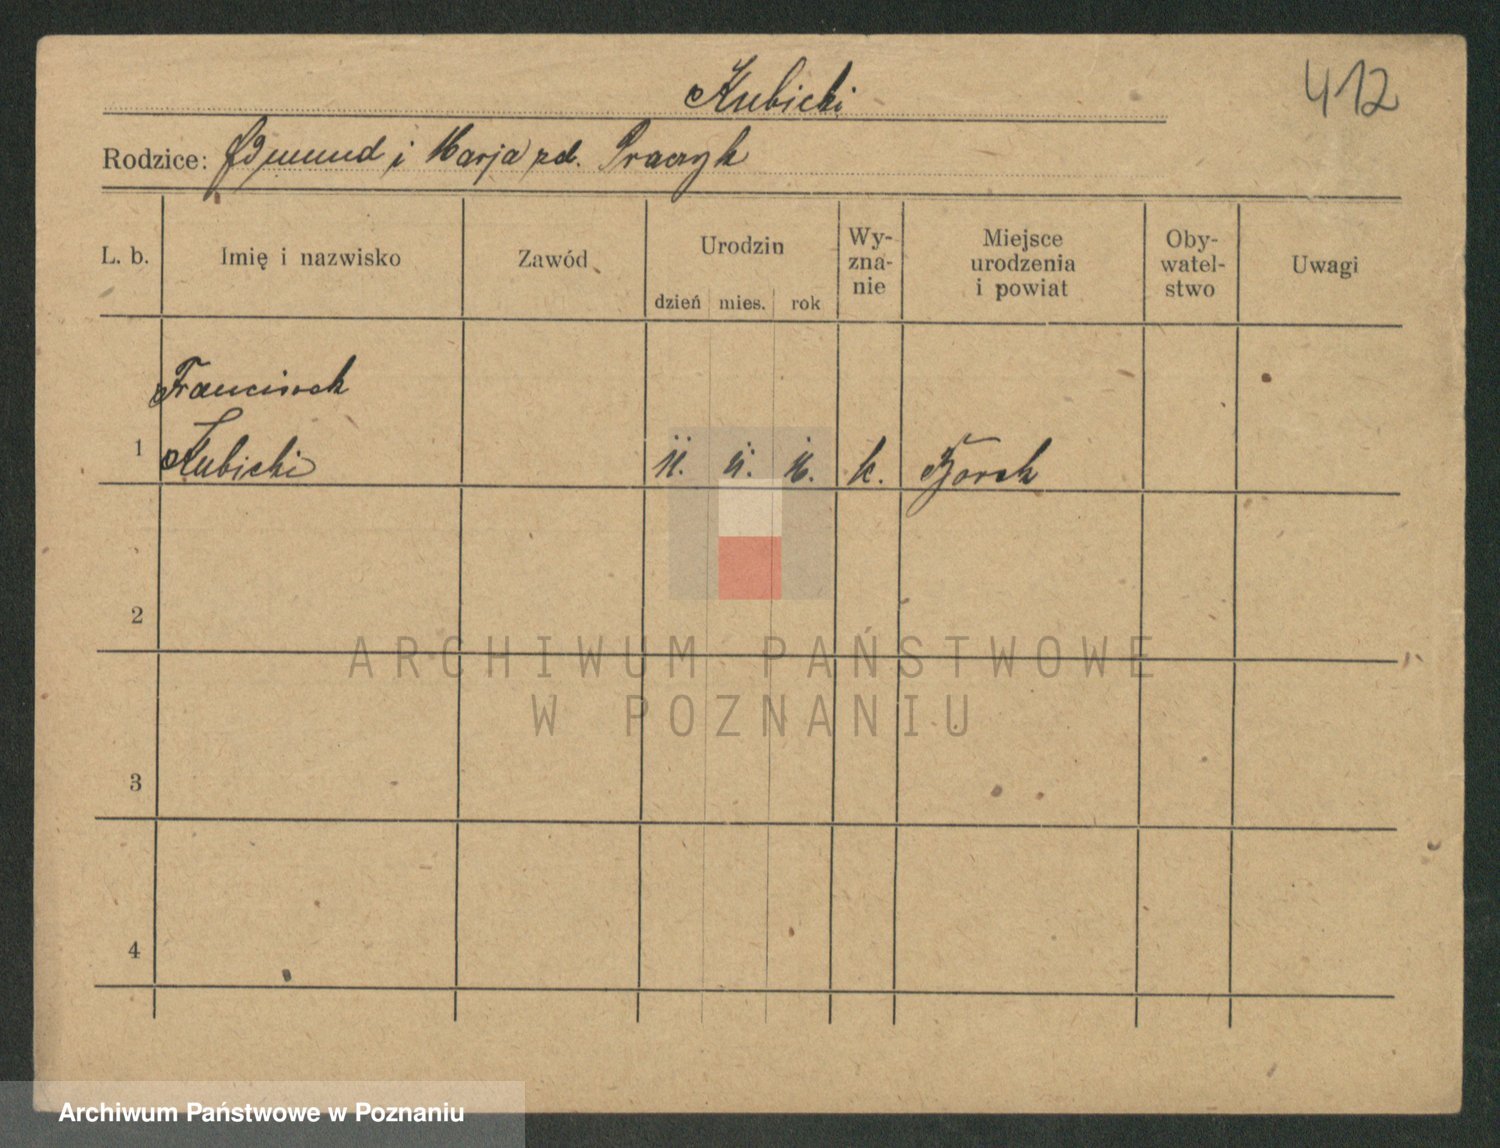 Kubicki
412
Rodzice: Edmund i Marja zd. Praczyk
L. b. Imię i nazwisko Zawód Urodzin dzień mies. rok Wy- zna- nie Miejsce urodzenia i powiat Oby- watel- stwo Uwagi
Franciszek
1 Kubicki k. Borek
2
ARCHIWUM PAŃSTWOWE
W POZNANIU
3
4
Archiwum Państwowe w Poznaniu